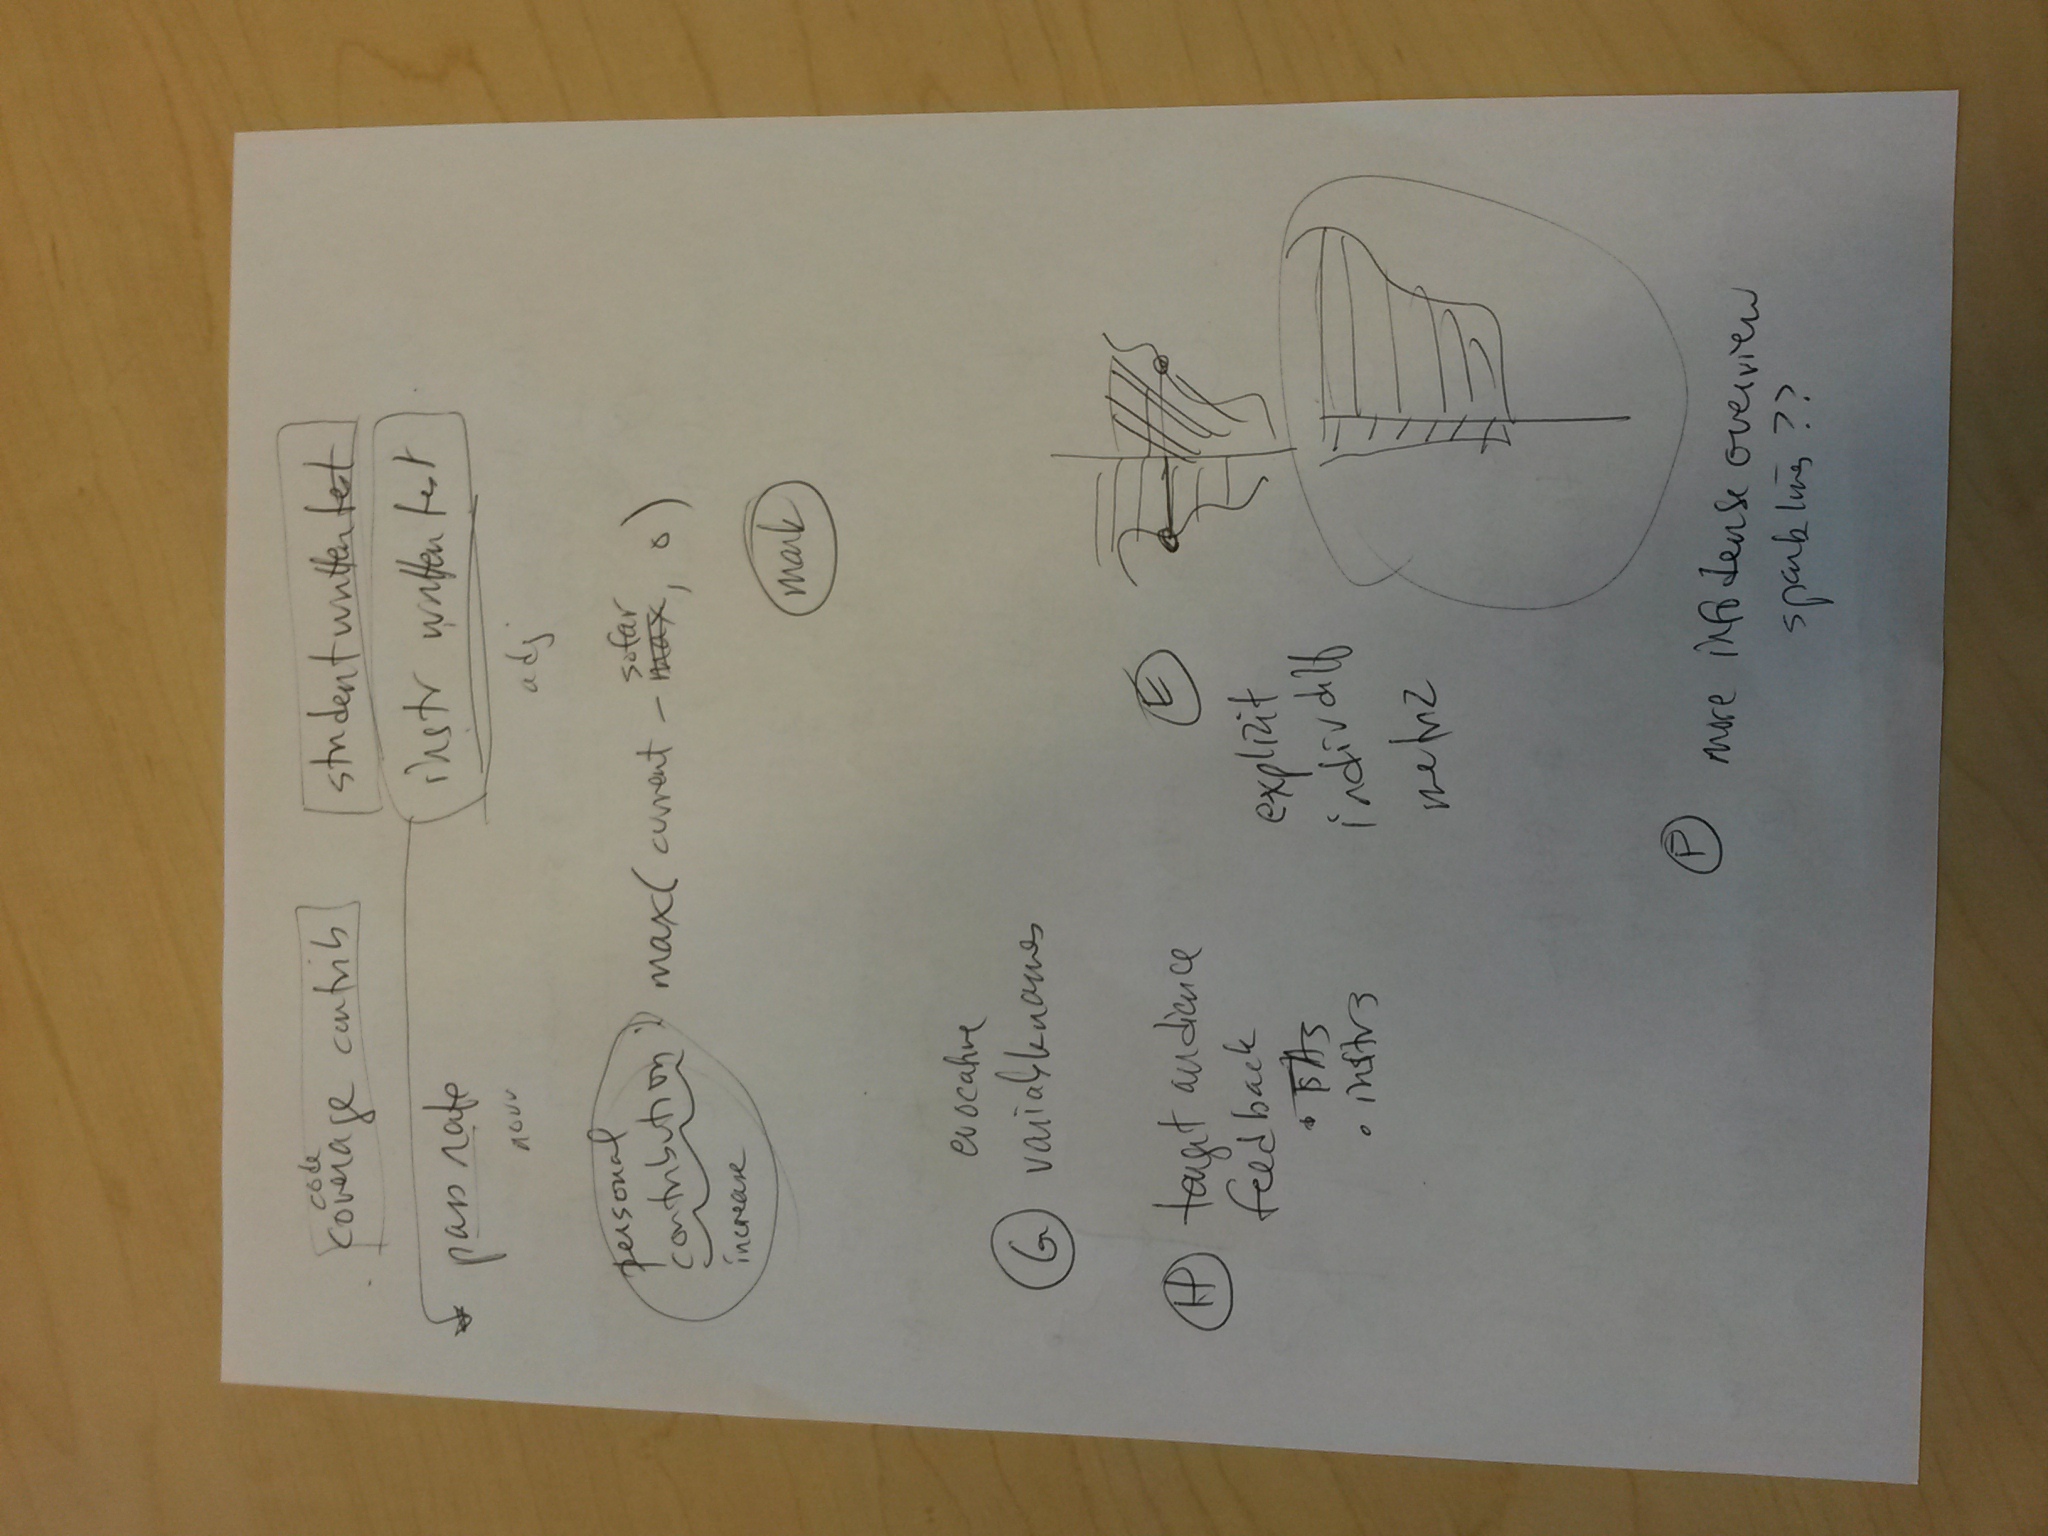 code
coverage contrib
student written test
instr written test
pass rate
noun
adj
personal
contribution : max( current - sofar max, 0)
increase
mark
evocative
G variable names
H target audience
feedback
• TAs
• instrs
E
explicit
indiv diff
metric
P more info dense overview
sparklines??